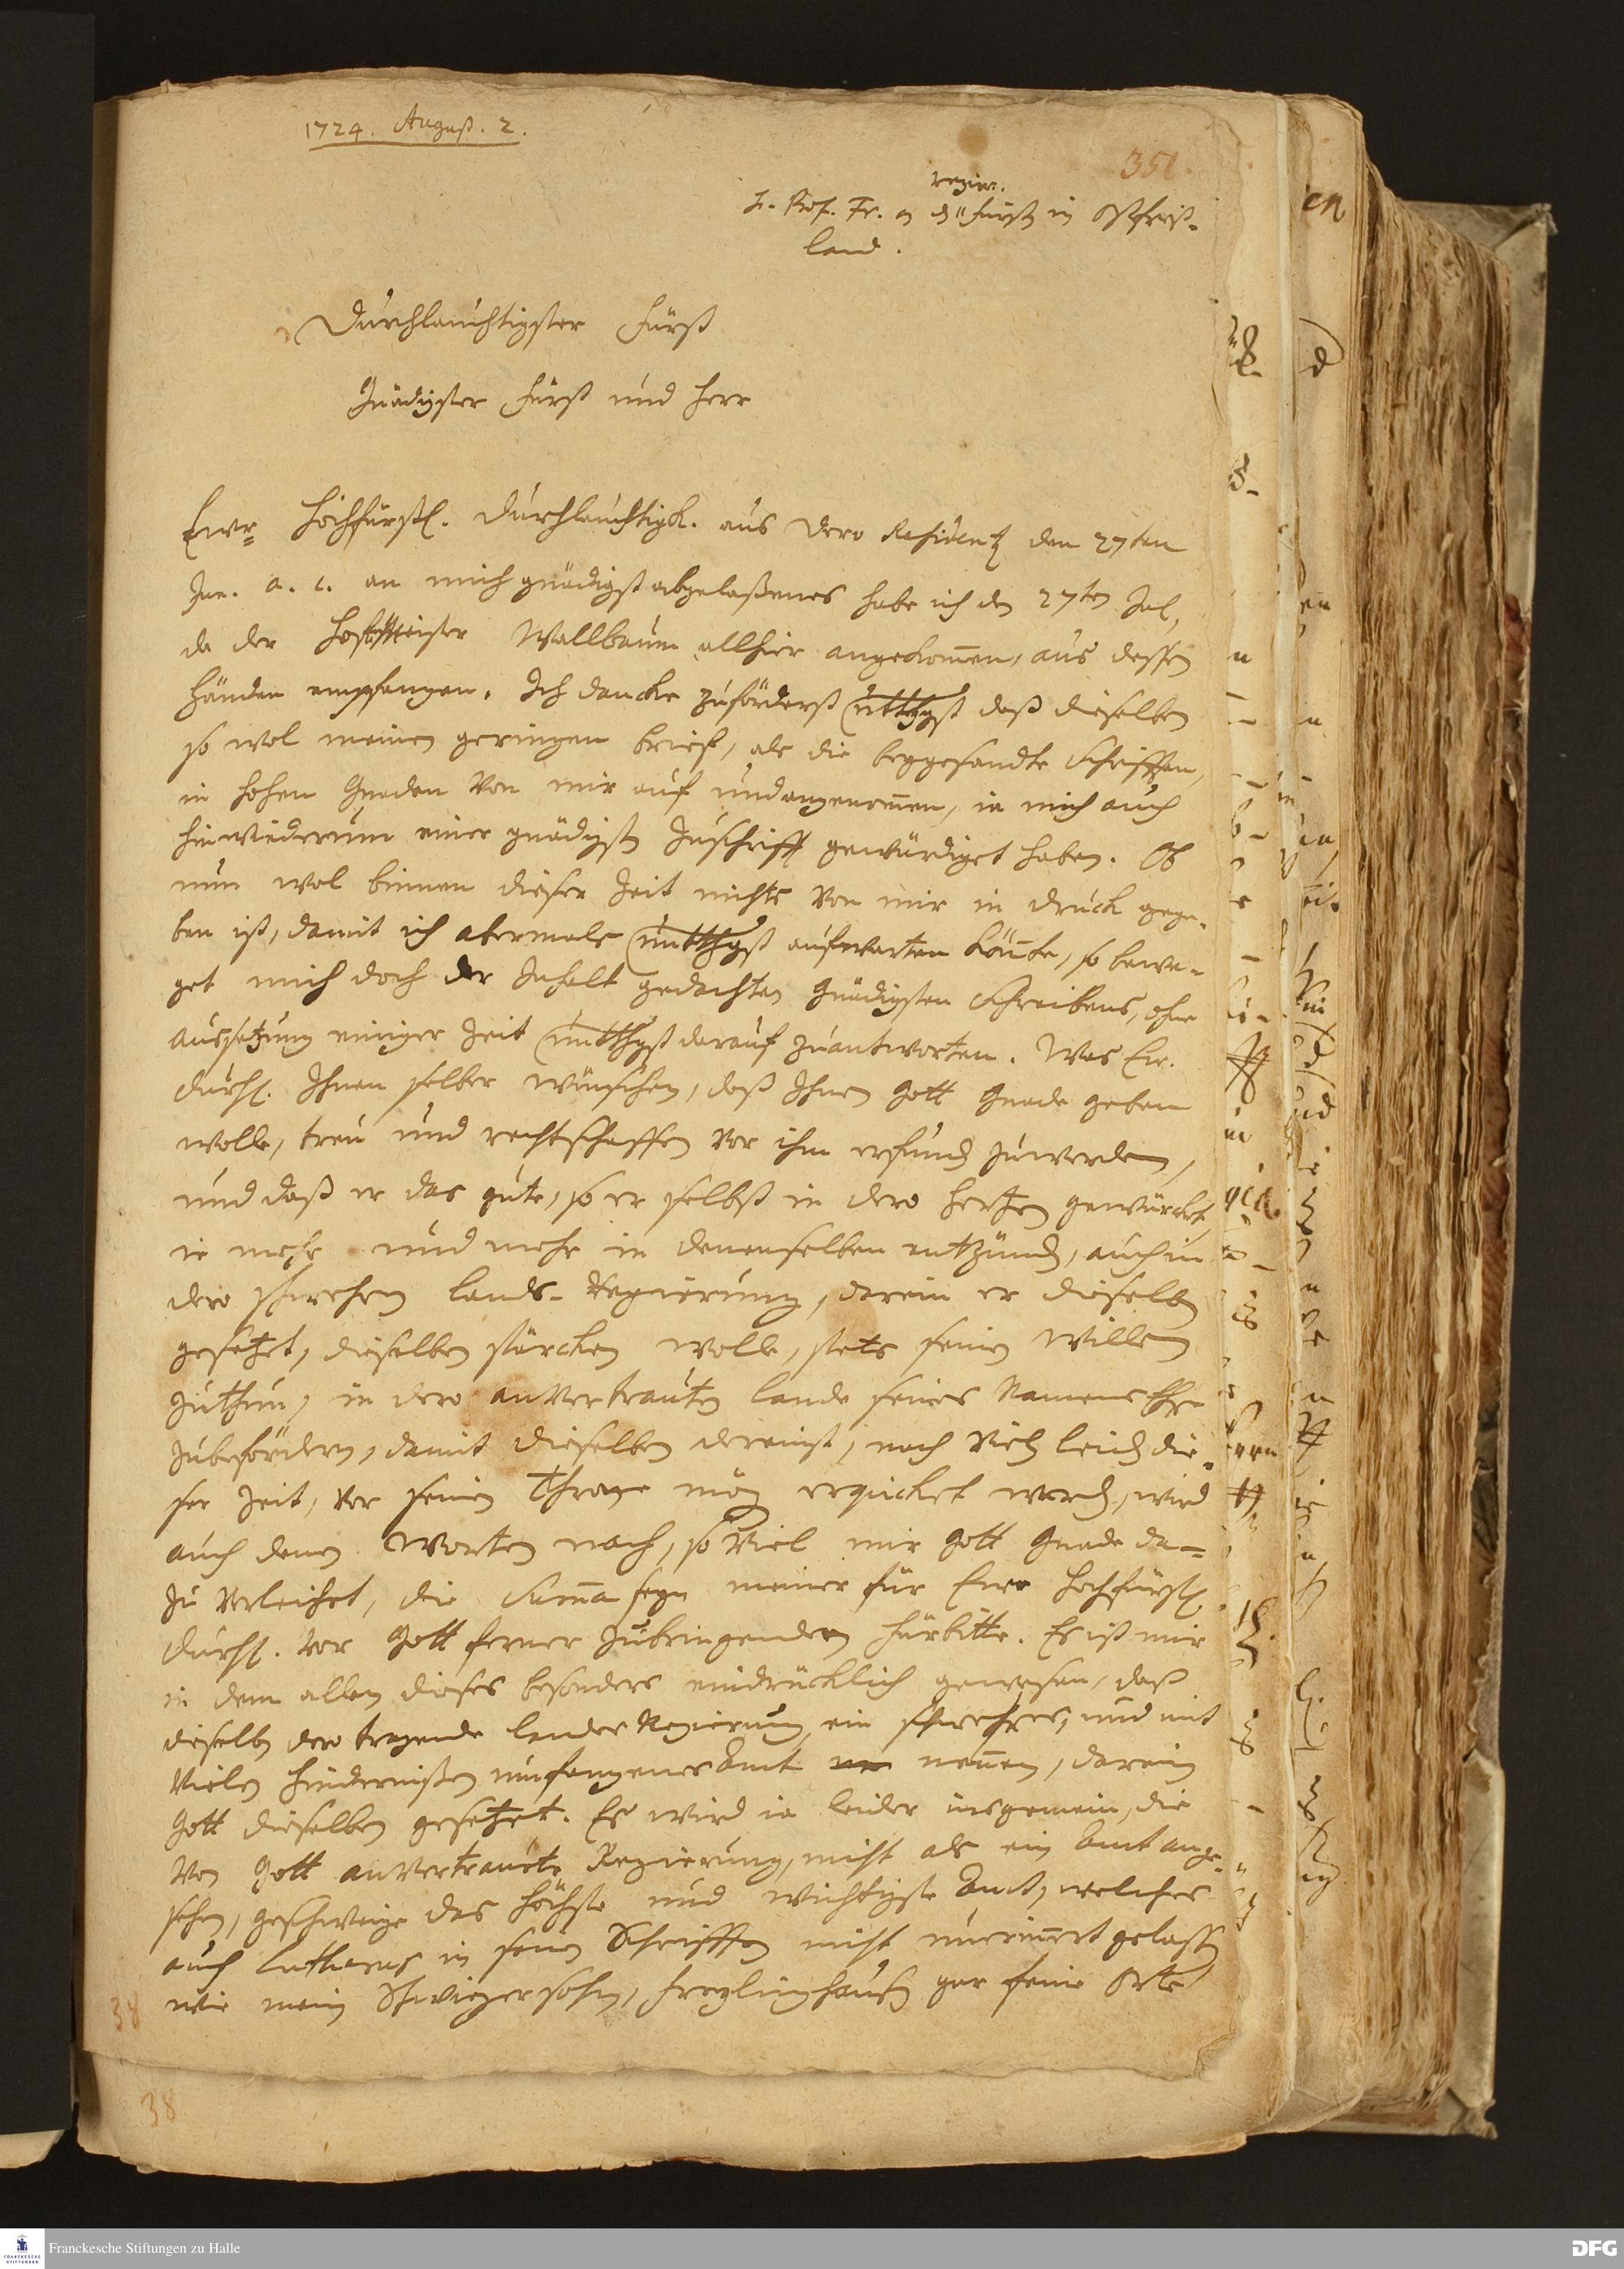 1724. August. 2.
351.
H. Prof. Fr. an d. regier. Fürst in Ostfrieß-
land.
Durchlauchtigster Fürst
Gnädigster Fürst und Herr
Ewr. Hochfürstl. Durchlauchtigk. aus Dero Residentz den 27ten
Jun. a. c. an mich gnädigst abgelaßenes habe ich den 27ten Jul,
da der Hofmeister Wallbaum allhier angekom̅en, aus dessen
Händen empfangen. Ich dancke zuförderst untthgst daß dieselben
so wol meinen geringen brieff, als die beygesandte Schrifften,
in hohen Gnaden von mir auf und angenom̅en, ia mich auch
hinwiederum einer gnädigsten Zuschrifft gewürdiget haben. Ob
nun wol binnen dieser Zeit nichts von mir in druck gege-
ben ist, damit ich abermals untthgst aufwarten kön̅te, so bewe-
get mich doch der Inhalt gedachten Gnädigsten Schreibens, ohne
aussetzung einiger Zeit untthgst darauf zuantworten. Was Ew.
Durchl. Ihnen selber wünschen, daß Ihnen Gott Gnade geben
wolle, treu und rechtschaffen vor ihm erfunden zuwerden,
und daß er das gute, so er selbst in dero Hertzen gewürcket,
ie mehr und mehr in denenselben entzünden, auch in
dero schwehren Lands-Regierung, darein er dieselben
gesetzet, dieselben stärcken wolle, stets seinen Willen
zuthun, in dero anvertrauten Lande seines Namens Ehre
zubefördern, damit dieselben dereinst, nach vielen leiden die-
ser Zeit, vor seinen Throne mögen erquicket werden, wird
auch denen Worten nach, so viel mir Gott Gnade da-
zu verleihet, die Sum̅a seyn meiner für Ewr Hochfürstl.
Durchl. vor Gott ferner zubringenden Fürbitte. Es ist mir
in dem allen dieses besonders eindrücklich gewesen, daß
dieselben dero tragende Landes Regierung ein schwehres, und mit
vielen Hindernißen umfangenes Amt nen̅en, darein
Gott dieselben gesetzet. Es wird ia leider insgemein, die
von Gott anvertraute Regierung, nicht als ein Amt ange-
sehen, geschweige das höchste und wichtigste Amt, welches
auch Lutherus in seinen Schrifften nicht unerin̅ert gelassen
wie mein Schwiegersohn, Freylinghausen gar feine Orte
38
38
Franckesche Stiftungen zu Halle
DFG